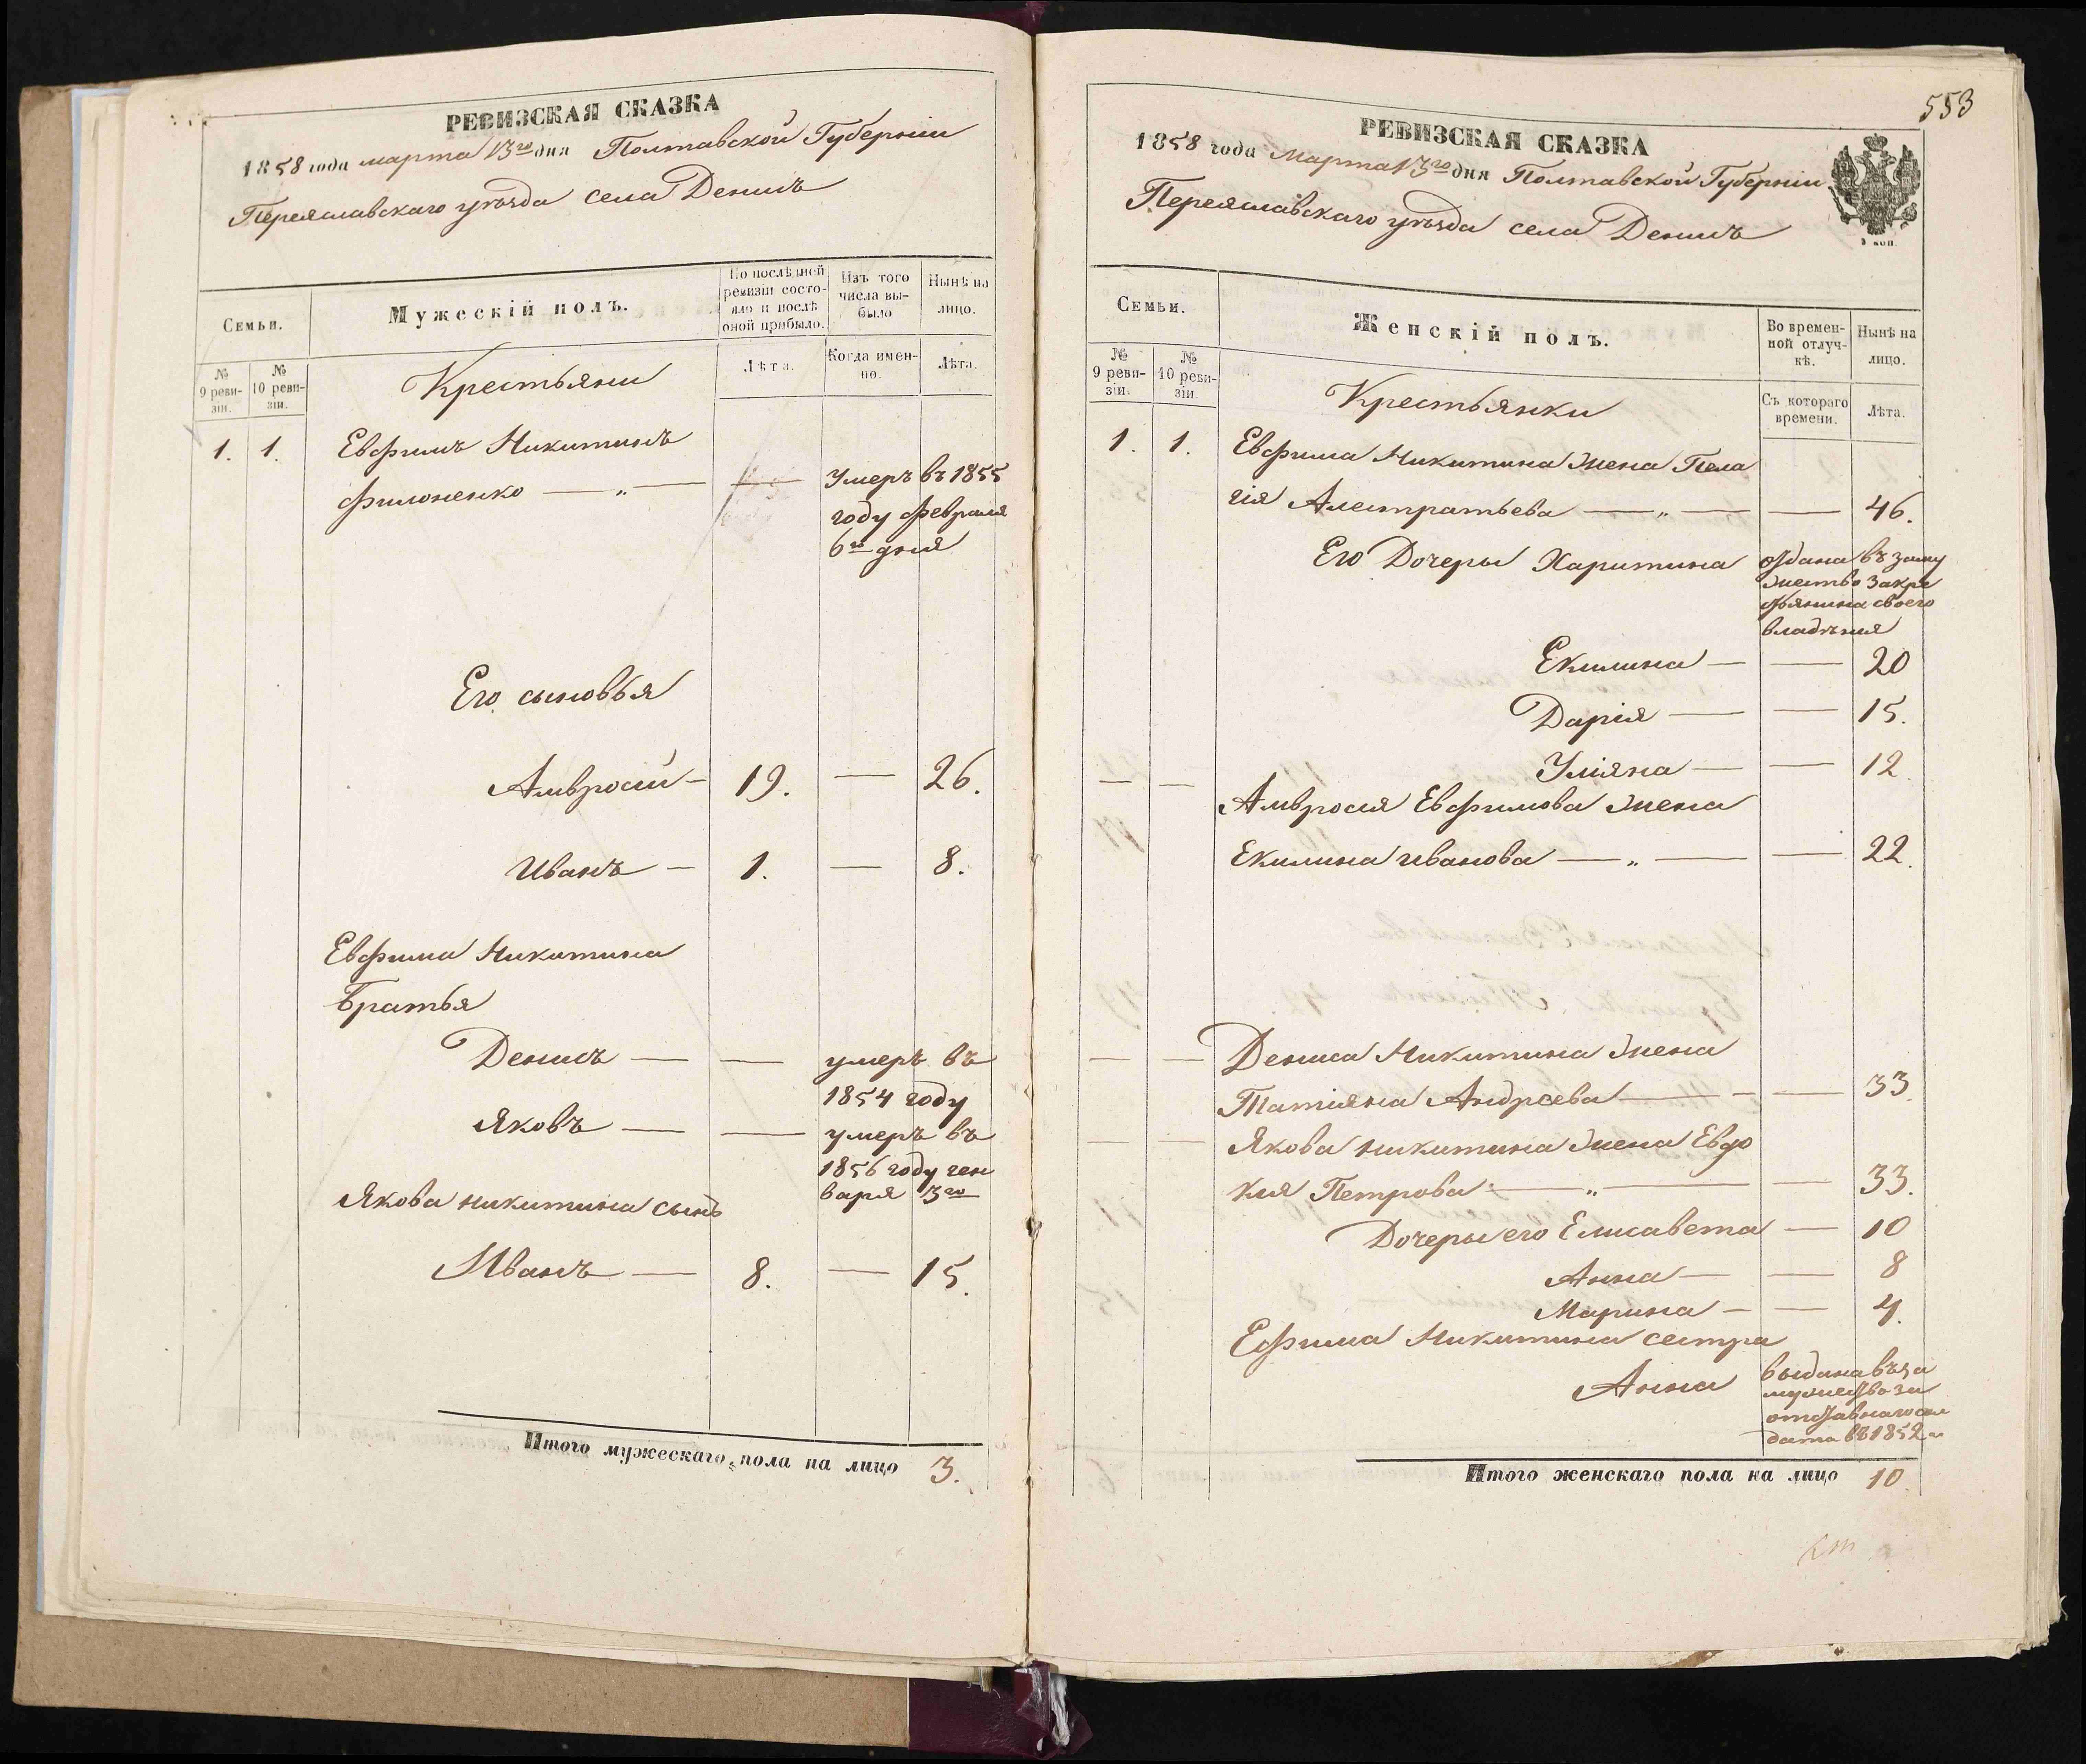 РЕВИЗСКАЯ СКАЗКА
1858 года марта 13го дня Полтавской Губерніи
Переяславскаго уѣзда села Денисъ
Семьи.
Мужескій полъ.
По послѣдней ревизіи состояло и послѣ оной прибыло.
Изъ того числа выбыло
Нынѣ на лицо.
№ 9 ревизіи.
№ 10 ревизіи.
Лѣта.
Когда именно.
Лѣта.
Крестьяни
1. 1. Евфимъ Никитинъ
Филоненко — „ — — Умеръ въ 1855
году февраля
6го дня
Его сыновья
Амвросий — 19. — 26.
Иванъ — 1. — 8.
Евфима Никитина
Братья
Денисъ — — умеръ въ
1854 году
Яковъ — — умеръ въ
1856 году ген
варя 3го
Якова никитина сынъ
Иванъ — 8. — 15.
Итого мужескаго пола на лицо 3.
553
РЕВИЗСКАЯ СКАЗКА
1858 года Марта 13го дня Полтавской Губерніи
Переяславскаго уѣзда села Денисъ
Семьи.
Женскій полъ.
Во временной отлучкѣ.
Нынѣ на лицо.
№ 9 ревизіи.
№ 10 ревизіи.
Съ котораго времени.
Лѣта.
Крестьянки
1. 1. Евфима Никитина жена Пела
гія Алестратьева — „ — — 46.
Его Дочеры Харитина отдана въ заму
жество за кре
стьянина своего
владѣния
Екилина — — 20
Дарія — — 15.
Уліяна — — 12.
— — Амвросия Евфимова жена
Екилина иванова — „ — — 22.
— — Дениса Никитина жена
Татіяна Андреева — — 33.
— — Якова никитина жена Евдо
кия Петрова — „ — — 33.
Дочеры его Елисавета — 10
Анна — — 8
Марина — — 4.
Ефима Никитина сестра
Анна выдана въ за
мужество за
отставнаго сол
дата въ 1852 г
Итого женскаго пола на лицо 10.